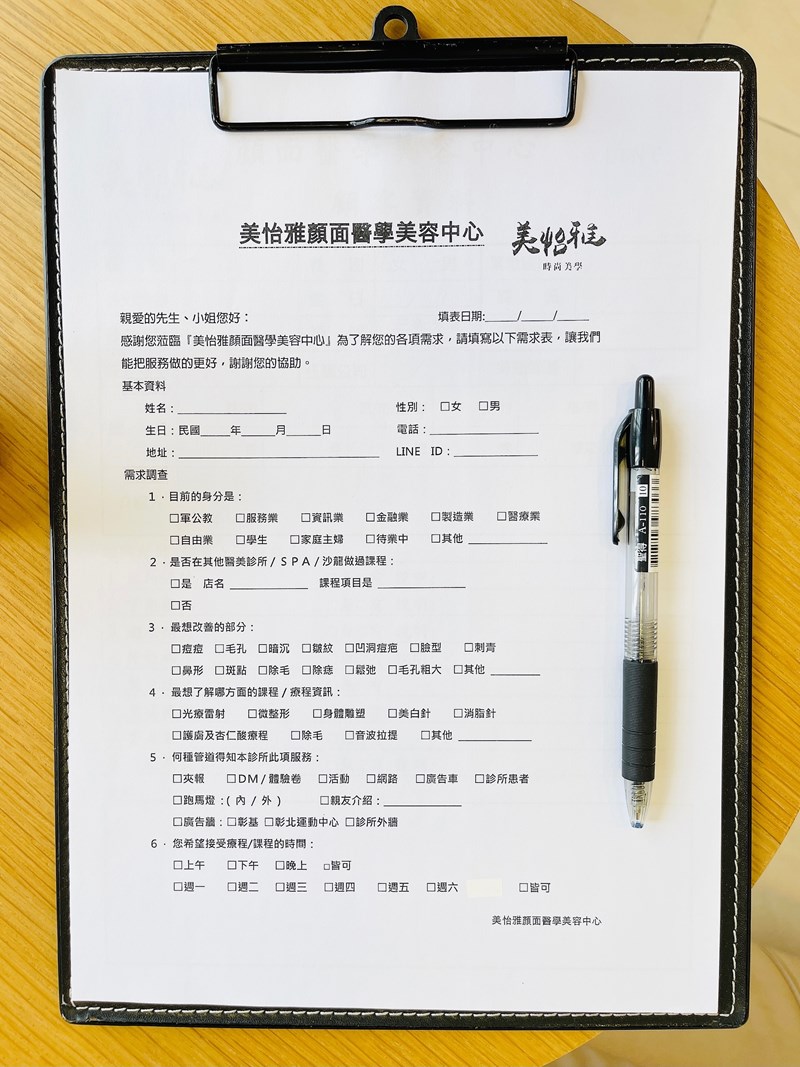 美怡雅顏面醫學美容中心
美怡雅
時尚美學
親愛的先生、小姐您好： 填表日期:_____/_____/_____
感謝您蒞臨『美怡雅顏面醫學美容中心』為了解您的各項需求，請填寫以下需求表，讓我們
能把服務做的更好，謝謝您的協助。
基本資料
姓名：_________________ 性別： □女 □男
生日：民國_____年_____月_____日 電話：_________________
地址：_______________________________ LINE ID：_____________
需求調查
1．目前的身分是：
□軍公教 □服務業 □資訊業 □金融業 □製造業 □醫療業
□自由業 □學生 □家庭主婦 □待業中 □其他 _____________
2．是否在其他醫美診所/ＳＰＡ/沙龍做過課程：
□是 店名 _____________ 課程項目是 ______________
□否
3．最想改善的部分：
□痘痘 □毛孔 □暗沉 □皺紋 □凹洞痘疤 □臉型 □刺青
□鼻形 □斑點 □除毛 □除痣 □鬆弛 □毛孔粗大 □其他 ________
4．最想了解哪方面的課程/療程資訊：
□光療雷射 □微整形 □身體雕塑 □美白針 □消脂針
□護膚及杏仁酸療程 □除毛 □音波拉提 □其他 ____________
5．何種管道得知本診所此項服務：
□夾報 □DM/體驗卷 □活動 □網路 □廣告車 □診所患者
□跑馬燈：( 內 / 外 ) □親友介紹：_____________
□廣告牆：□彰基 □彰北運動中心 □診所外牆
6．您希望接受療程/課程的時間：
□上午 □下午 □晚上 □皆可
□週一 □週二 □週三 □週四 □週五 □週六 □皆可
美怡雅顏面醫學美容中心
A-110
10